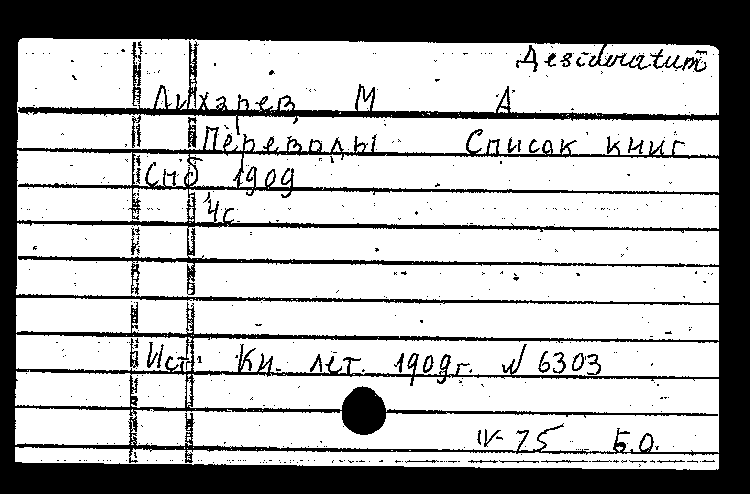 Desideratum
Лихарев М А
Переводы Список книг
Спб 1909
4с
Ист: Кн. лет. 1909г. № 6303
IV-75 Б.О.